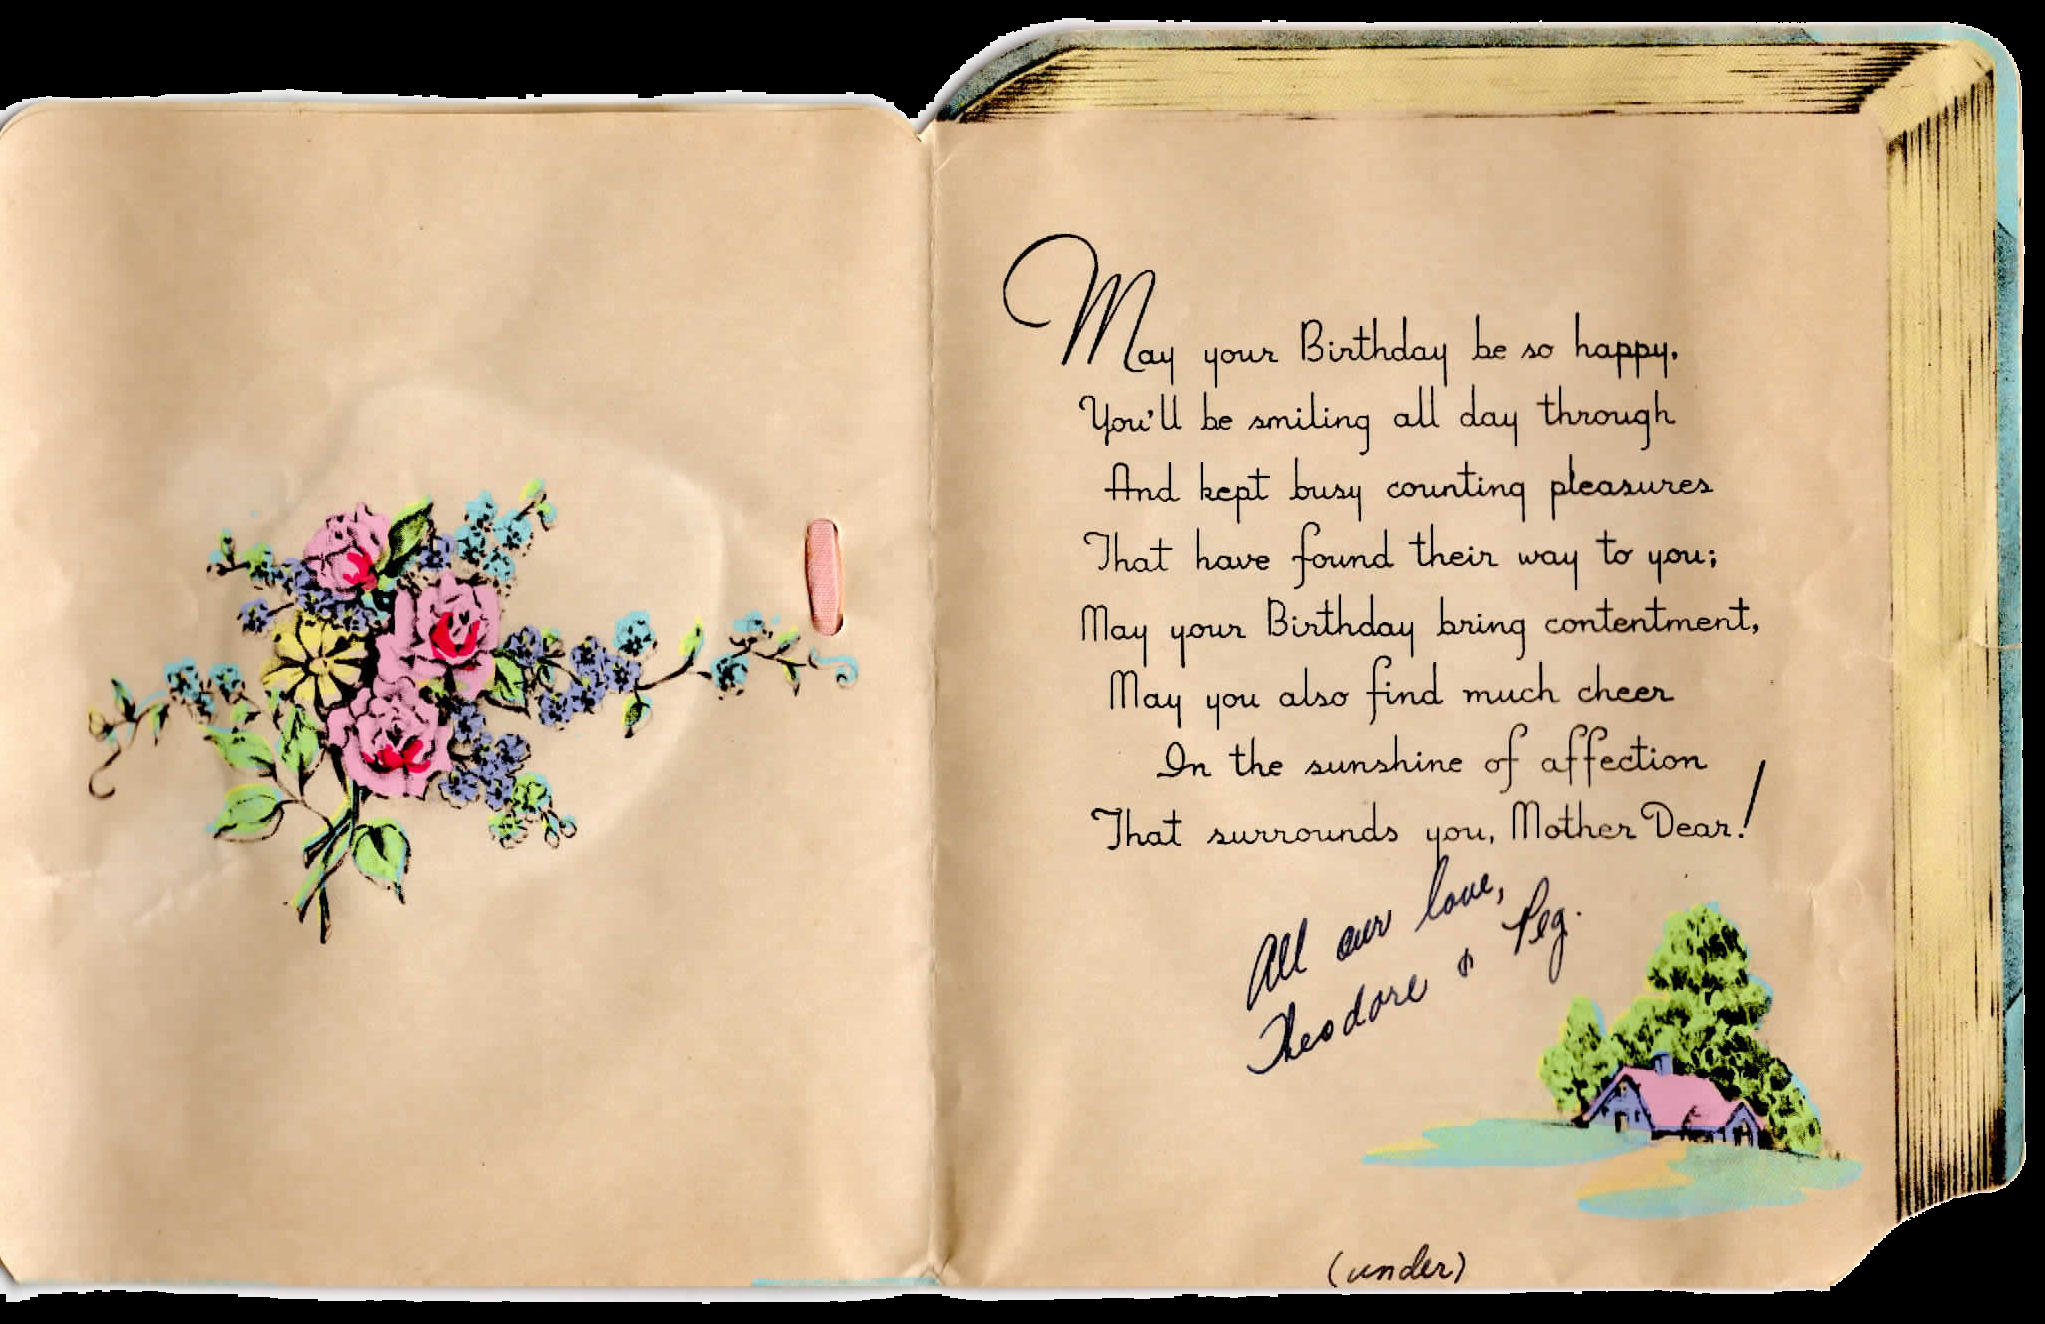 May your Birthday be so happy,
You'll be smiling all day through
And kept busy counting pleasures
That have found their way to you;
May your Birthday bring contentment,
May you also find much cheer
In the sunshine of affection
That surrounds you, Mother Dear!
All our love,
Theodore & Peg.
(under)